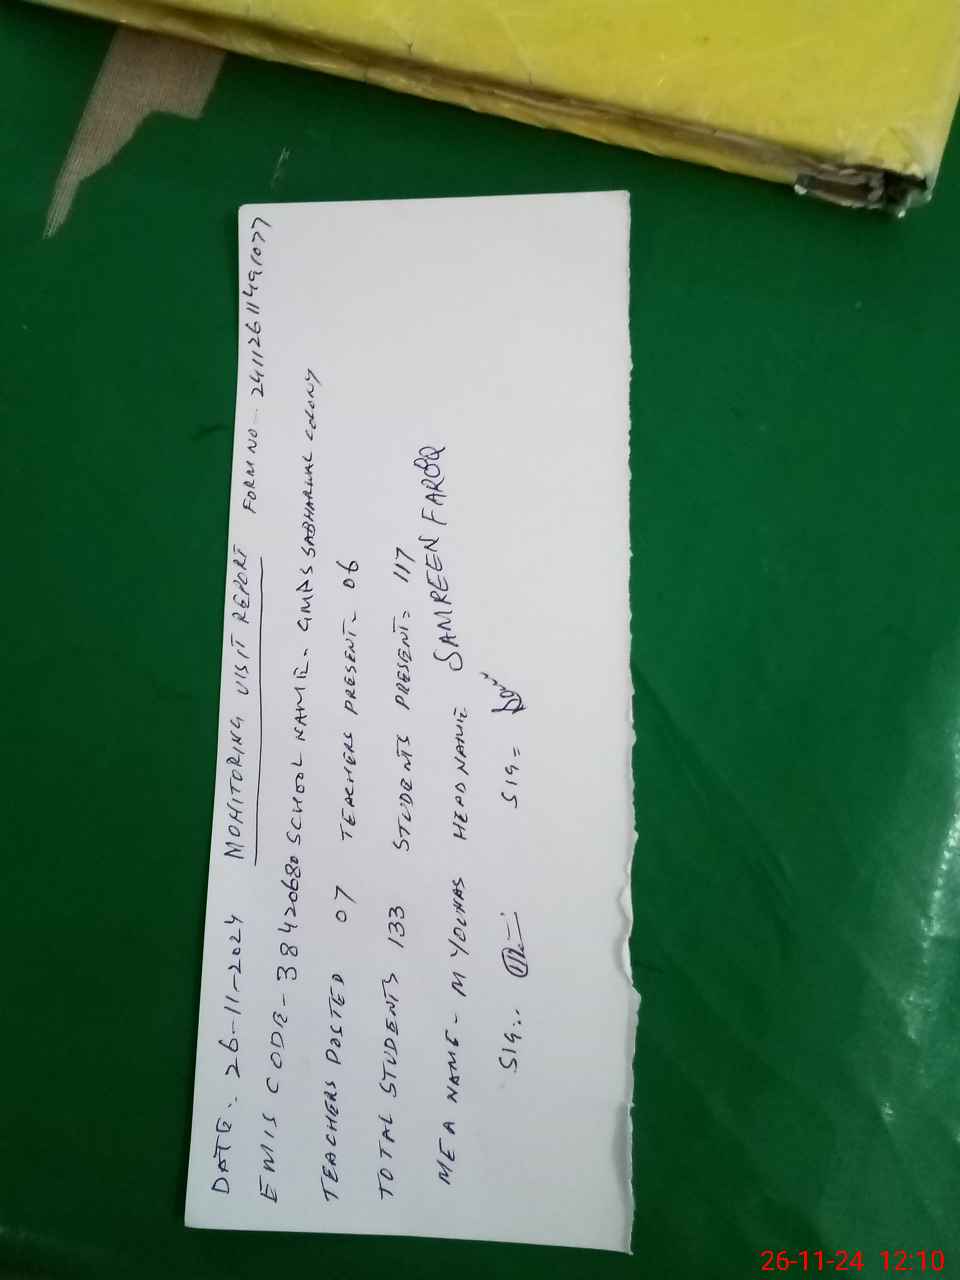 DATE:- 26-11-2024 MONITORING VISIT REPORT FORM NO- 241126114991077
EMIS CODE- 38420680 SCHOOL NAME- GMPS SABHARWAL COLONY
TEACHERS POSTED 07 TEACHERS PRESENT- 06
TOTAL STUDENTS 133 STUDENTS PRESENT= 117
MEA NAME- M YOUNAS HEAD NAME SAMREEN FAROOQ
SIG:- SIG=
26-11-24 12:10